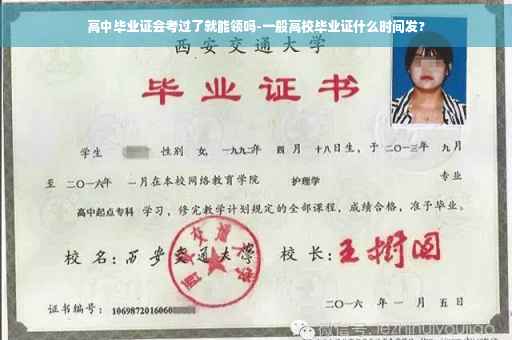 高中毕业证会考过了就能领吗-一般高校毕业证什么时间发?
西安交通大学
毕业证书
学生 性别 女, 一九九二年 四月 十八日生, 于二〇一三年 九月
至 二〇一六年 一月在本校网络教育学院 护理学 专业
高中起点专科 学习, 修完教学计划规定的全部课程, 成绩合格, 准予毕业。
校 名: 西安交通大学 校 长: 王树国
西安交通大学
证书编号: 1069872016060
二〇一六 年 一 月 五 日
微信号: jiezhihuiyoujiao